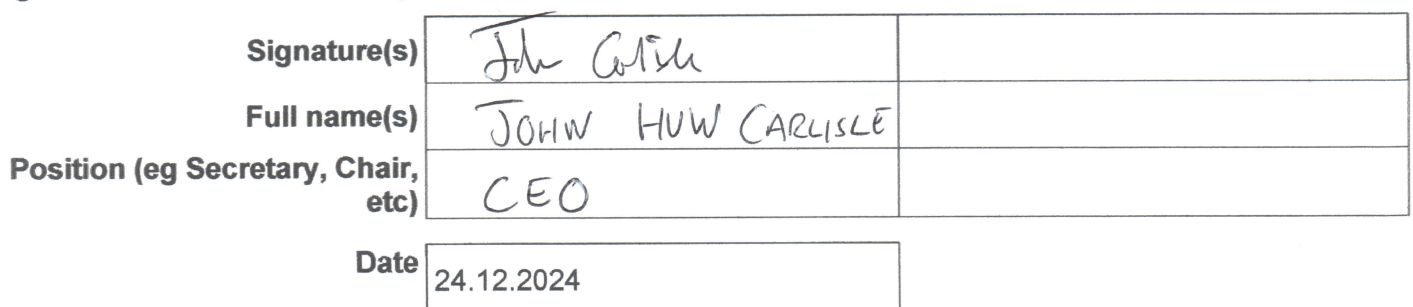 Signature(s)
Full name(s) JOHN HUW CARLISLE
Position (eg Secretary, Chair,
etc) CEO
Date 24.12.2024